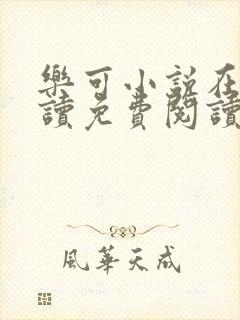 樂可小說在
讀免費閱讀
風華天成